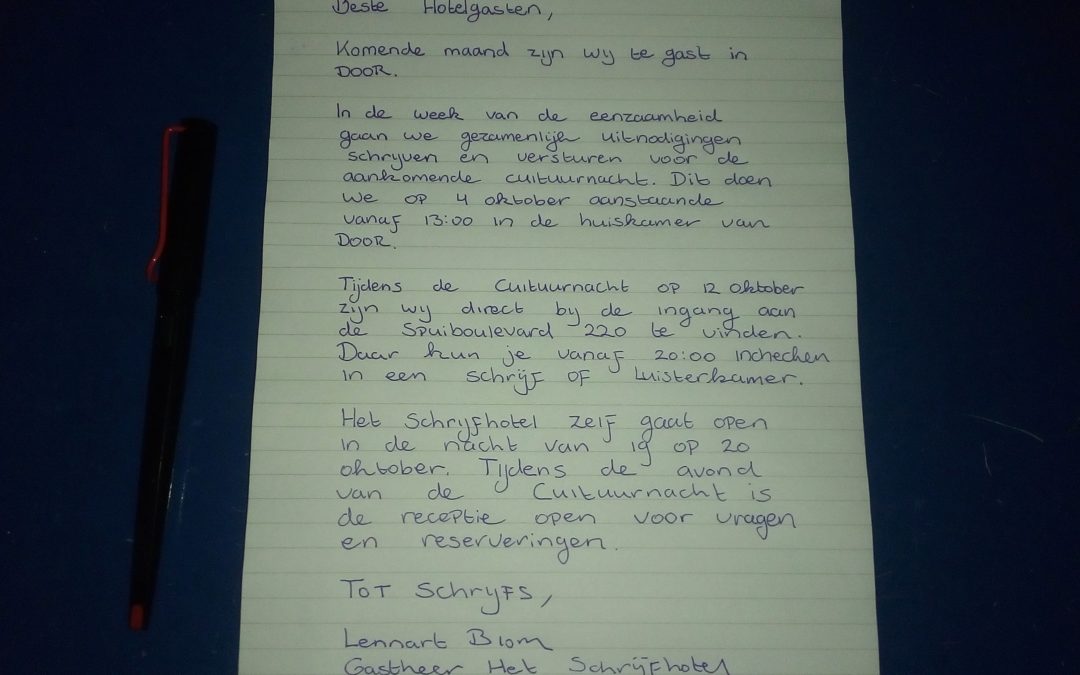 Beste Hotelgasten,
Komende maand zijn wy te gast in
DOOR.
In de week van de eenzaamheid
gaan we gezamenlijk uitnodigingen
schryven en versturen voor de
aankomende cultuurnacht. Dit doen
we op 4 oktober aanstaande
vanaf 13:00 in de huiskamer van
DOOR.
Tijdens de Cultuurnacht op 12 oktober
zijn wy direct by de ingang aan
de Spuiboulevard 220 te vinden.
Daar kun je vanaf 20:00 inchecken
in een schrijf of Luisterkamer.
Het Schryfhotel zelf gaat open
in de nacht van 19 op 20
oktober. Tijdens de avond
van de Cultuurnacht is
de receptie open voor vragen
en reserveringen.
Tot Schryfs,
Lennart Blom
Gastheer Het Schrijfhotel